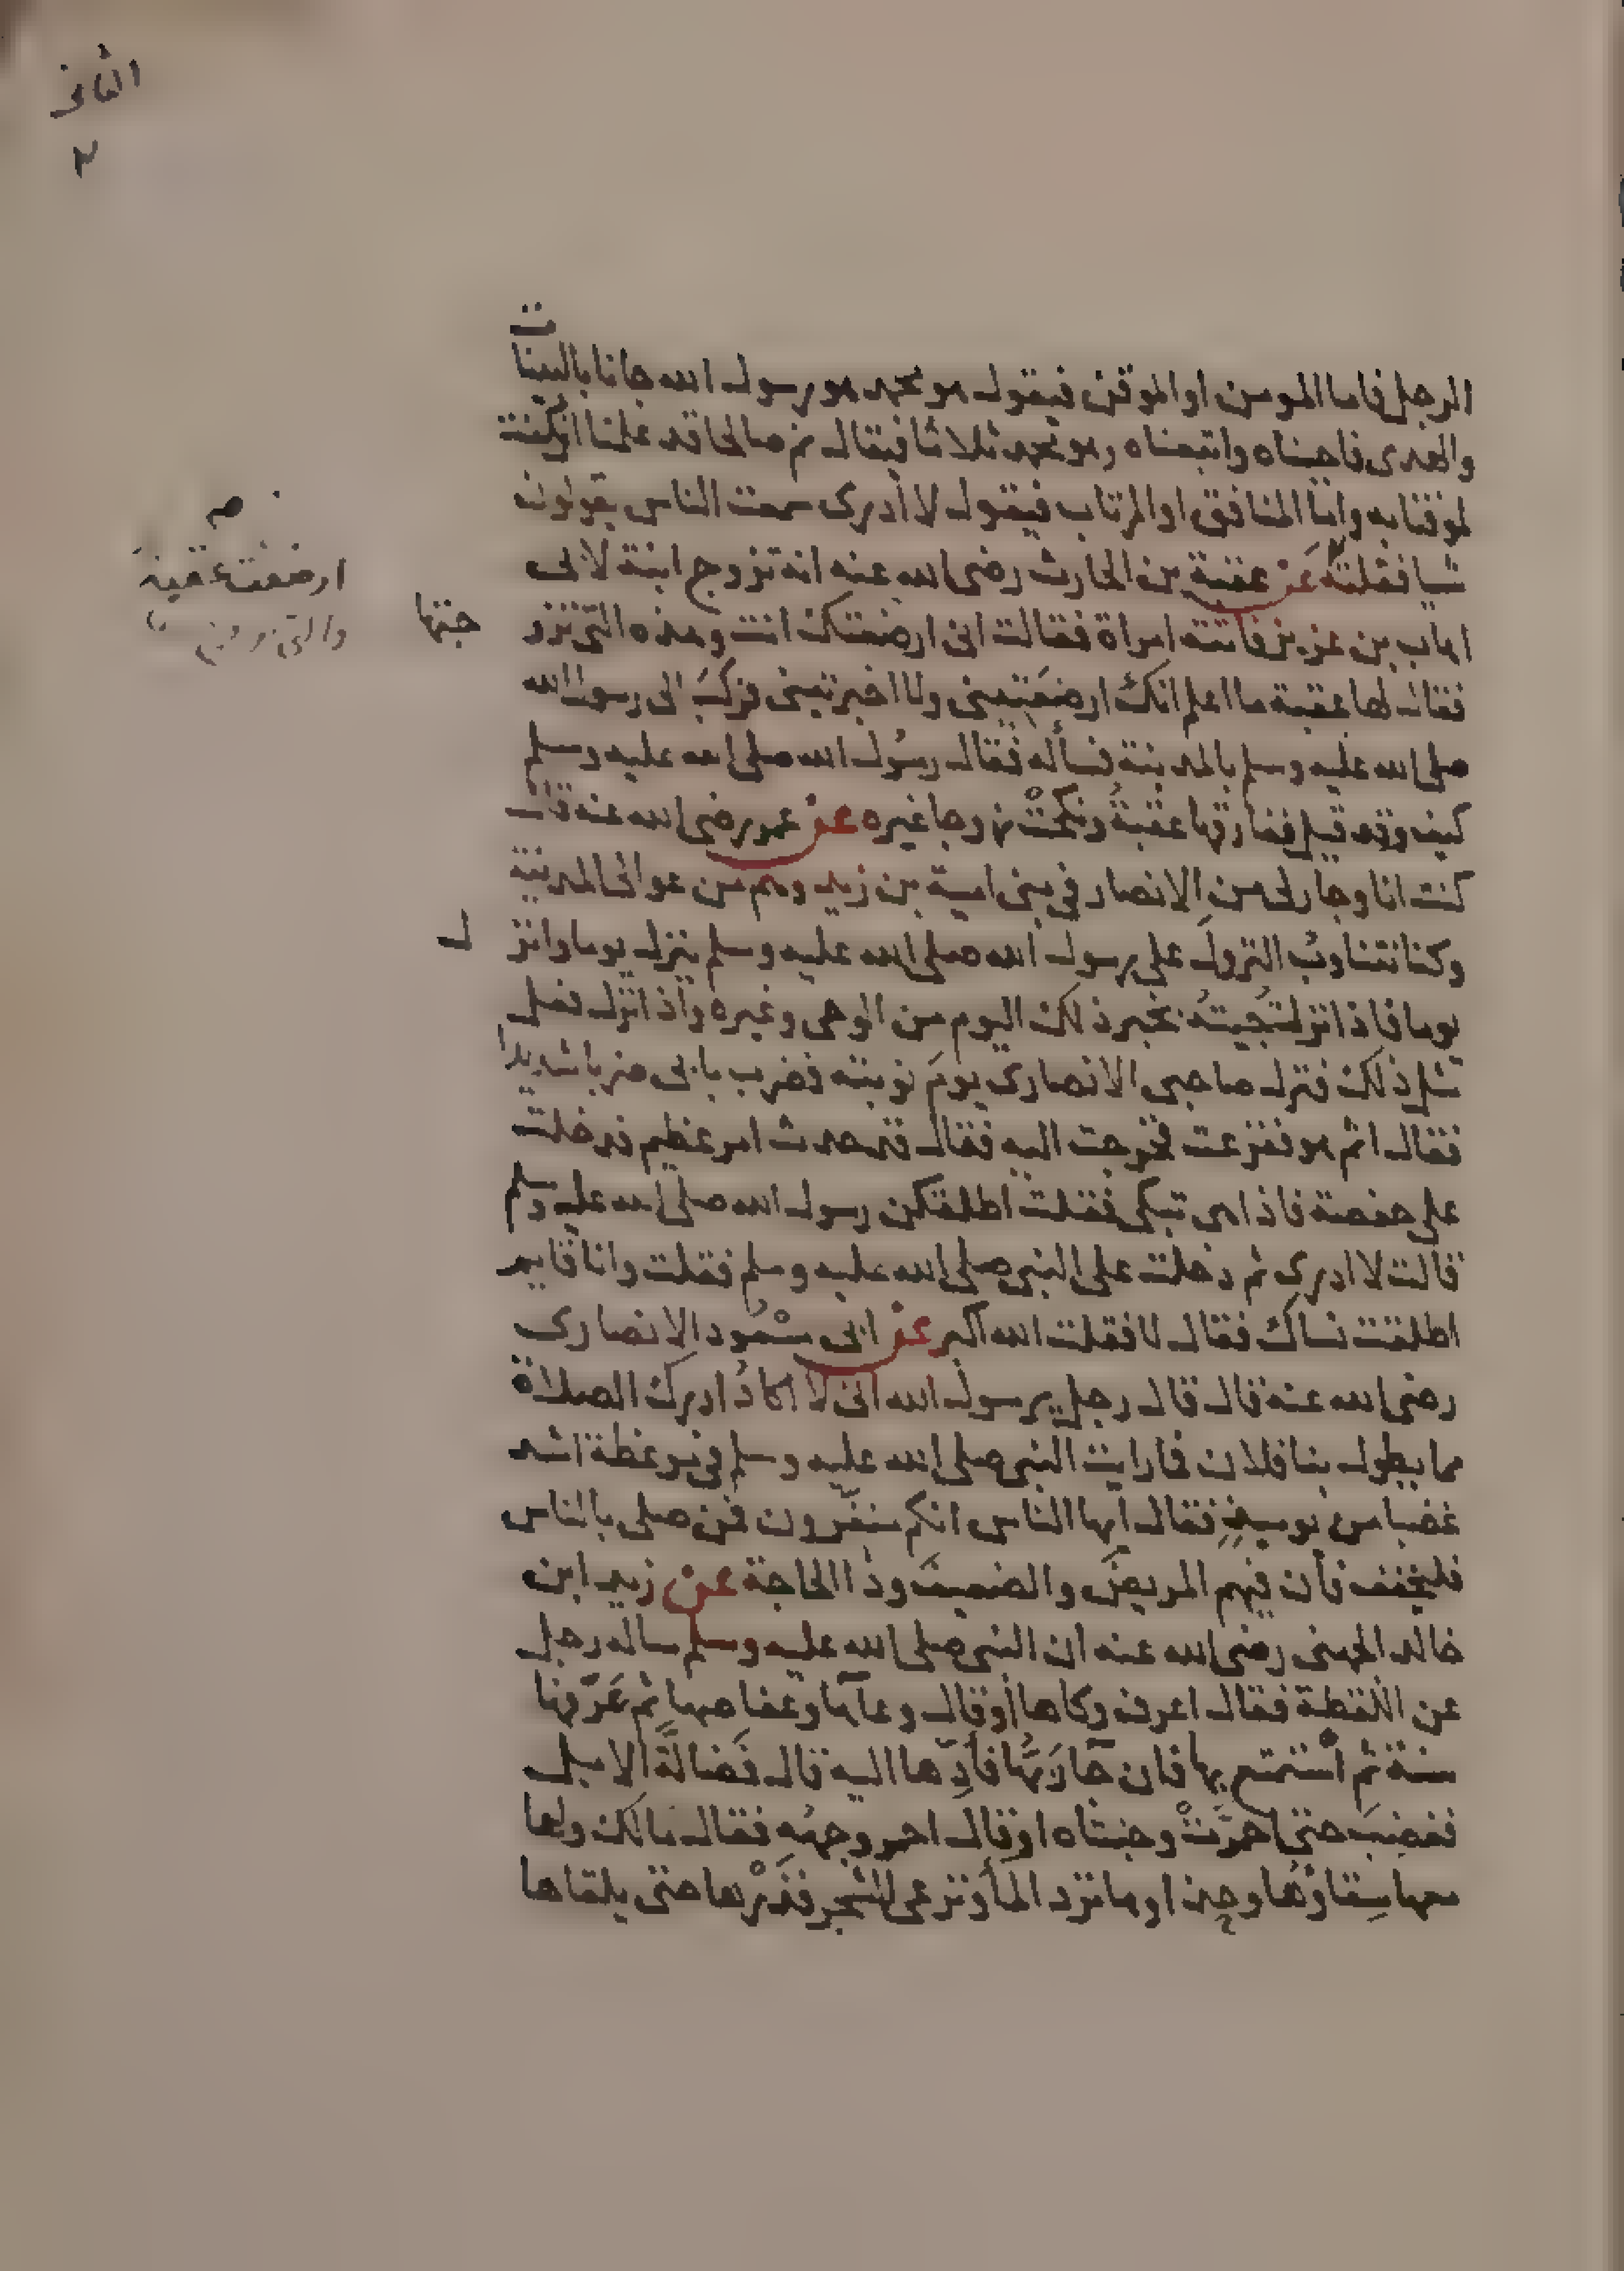 الثانى
٣
الرجل فاما المومن او الموقن فيقول هو محمد هو رسول الله جانا بالبينات
والهدى فاجبناه واتبعناه وهو محمد ثلاثا فيقال نم صالحا قد علمنا ان كنت
لموقنا به واما المنافق او المرتاب فيقول لا ادرى سمعت الناس يقولون
شيا فقلته عن عقبة بن الحارث رضى الله عنه انه تزوج ابنة لابى
اهاب بن عزيز فاتته امراة فقالت انى ارضعتك انت وهذه التى تزو جتها
ارضعت عقبة
والتى تزوج
فقال لها عقبة ما اعلم انك ارضعتينى ولا اخبرتينى فركب الى رسول الله
صلى الله عليه وسلم بالمدينة فسأله فقال رسول الله صلى الله عليه وسلم
كيف وقد قيل ففارقها عقبة ونكحت زوجا غيره عن عمر رضى الله عنه قال
كنت انا وجار لى من الانصار فى بنى امية بن زيد وهم من عوالى المدينة
وكنا نتناوب النزول على رسول الله صلى الله عليه وسلم ينزل يوما وانز ل
يوما فاذا نزلت جيته بخبر ذلك اليوم من الوحى وغيره واذا نزل فعل
مثل ذلك فنزل صاحبى الانصارى يوم نوبته فضرب بابى ضربا شديدا
فقال اثم هو ففزعت فخرجت اليه فقال قد حدث امر عظيم فدخلت
على حفصة فاذا هى تبكى فقلت اطلقكن رسول الله صلى الله عليه وسلم
قالت لا ادرى ثم دخلت على النبى صلى الله عليه وسلم فقلت وانا قايم
اطلقت نساك فقال لا فقلت الله اكبر عن ابى مسعود الانصارى
رضى الله عنه قال قال رجل يرسول الله انى لا اكاد ادرك الصلاة
مما يطول بنا فلان فما رايت النبى صلى الله عليه وسلم فى موعظة اشد
غضبا من يوميذ فقال ايها الناس انكم منفرون فمن صلى بالناس
فليخفف فان فيهم المريض والضعيف وذا الحاجة عن زيد ابن
خالد الجهنى رضى الله عنه ان النبى صلى الله عليه وسلم ساله رجل
عن اللقطة فقال اعرف وكاها أوقال وعآها وعفاصها ثم عرفها
سنة ثم استمتع بها فان جآ ربها فادها اليه قال فضالة الابل
فغضب حتى احمرت وجنتاه او قال احمر وجهه فقال مالك ولها
معها سقاوها وحذاوها ترد الما وترعى الشجر فذرها حتى يلقاها